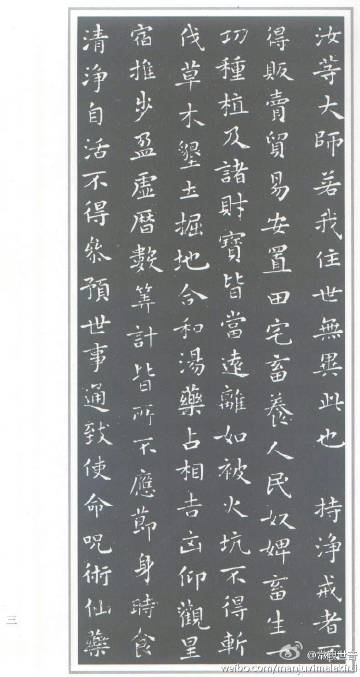 汝等大師若我住世無異此也 持淨戒者
得販賣貿易安置田宅畜養人民奴婢畜生一
切種植及諸財寶皆當遠離如被火坑不得斬
伐草木墾土掘地合和湯藥占相吉凶仰觀星
宿推步盈虛曆數筭計皆所不應節身時食
清淨自活不得叅預世事通致使命呪術仙藥
三
weibo.com/manjuvimalakirti